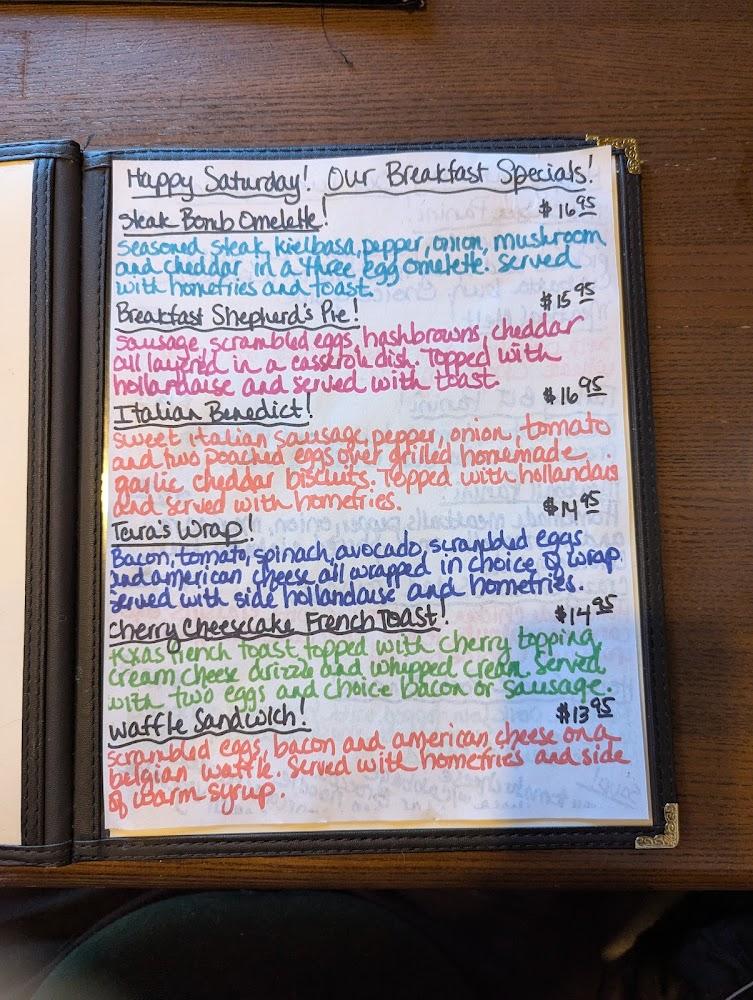 Happy Saturday! Our Breakfast Specials!
Steak Bomb Omelette! $16.95
Seasoned steak, kielbasa, pepper, onion, mushroom
and cheddar in a three egg omelette. Served
with homefries and toast.
Breakfast Shepherd's Pie! $15.95
Sausage, scrambled eggs, hashbrowns, cheddar
all layered in a casserole dish. Topped with
hollandaise and served with toast.
Italian Benedict! $16.95
Sweet italian sausage, pepper, onion, tomato
and two poached eggs over grilled homemade
garlic cheddar biscuits. Topped with hollandais
and served with homefries.
Tara's Wrap! $14.95
Bacon, tomato, spinach, avocado, scrambled eggs
and american cheese all wrapped in choice of wrap
served with side hollandaise and homefries.
Cherry Cheesecake French Toast! $14.95
Texas french toast topped with cherry topping,
cream cheese drizzle and whipped cream. Served
with two eggs and choice bacon or sausage.
Waffle Sandwich! $13.95
Scrambled eggs, bacon and american cheese on a
belgian waffle. Served with homefries and side
of warm syrup.